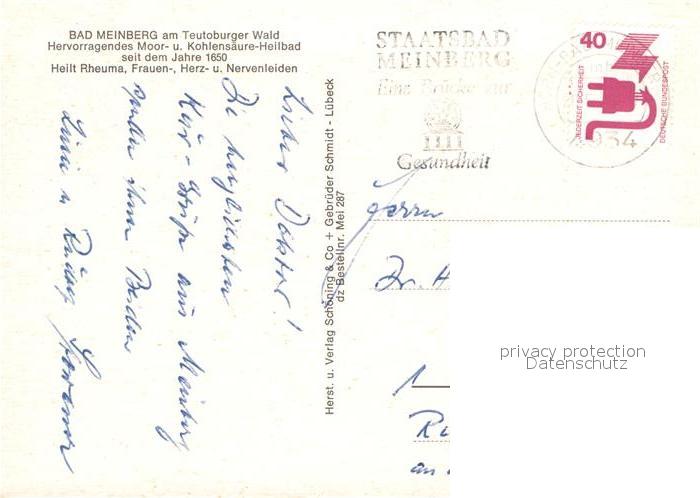 BAD MEINBERG am Teutoburger Wald
Hervorragendes Moor- u. Kohlensäure-Heilbad
seit dem Jahre 1650
Heilt Rheuma, Frauen-, Herz- u. Nervenleiden
Lieber Doktor!
Die herzlichsten
Kur-Grüße aus Meinberg
senden Ihnen Beiden
Herst. u. Verlag Schöning & Co + Gebrüder Schmidt - Lübeck
dz Bestellnr. Mei 287
STAATSBAD
MEINBERG
Eine Brücke zur
Gesundheit
40
JEDERZEIT SICHERHEIT
DEUTSCHE BUNDESPOST
Herrn
Dr. H
1
an
privacy protection
Datenschutz